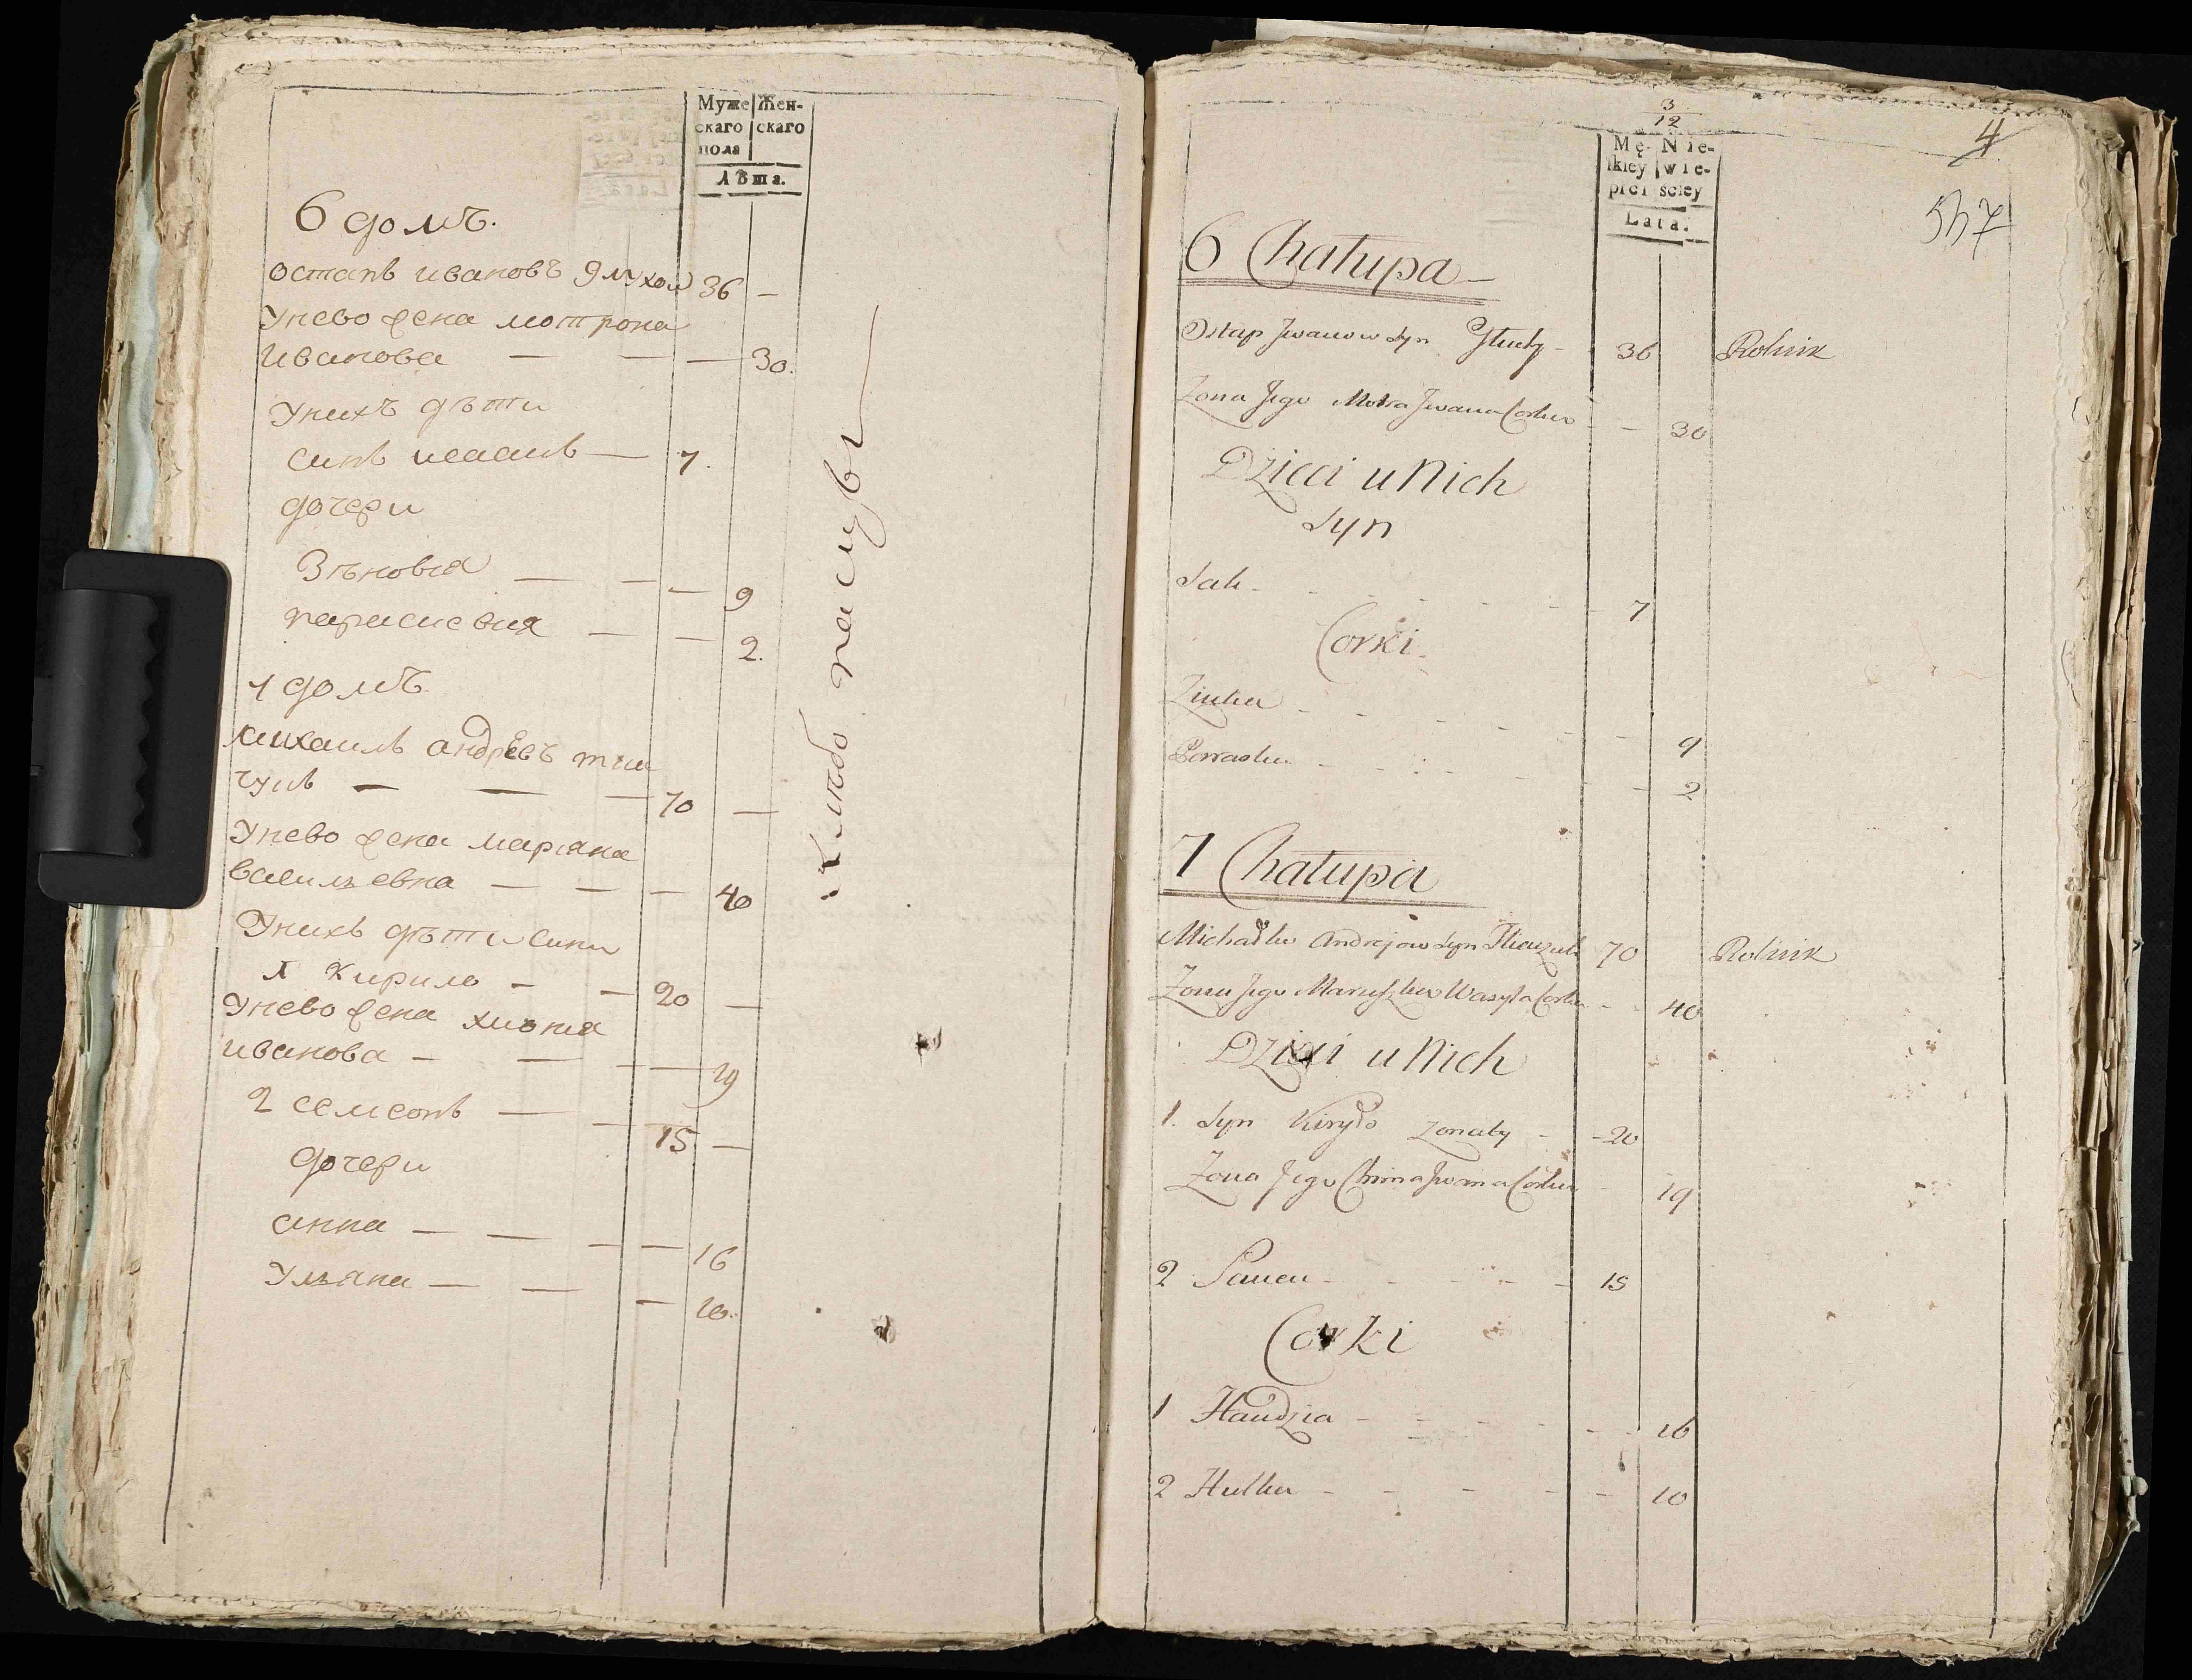 Муже Жен-
скаго скаго
пола
Лѣта.
6 домъ.
Остапъ ивановъ глухои 36 —
Унево жена мотрона
иванова — — — 30.
Унихъ дѣти
синъ исаакъ — 7.
дочери
Зѣновия — — — 9
параскевия — — 2.
7 домъ.
михаилъ андрѣевъ
— — — 70 —
Унево жена марияна
васильевна — — — 40
Унихъ дѣти сини
1 Кирило — — 20 —
Унево жена хиония
иванова — — — — 19
2 семеонъ — — 15 —
дочери
анна — — — — 16
Ульяна — — — 10.
3
12
4
547
Mę- Nie-
ſkiey wie-
płci sciey
Lata.
6 Chałupa —
Ostap Jwanow syn Głuchy - 36 Rolnik
Zona Jego Motra Jwana Corka - - 30
Dzieci u Nich
Syn
Sak - - - - - 7
Corki
Zinka - - - - - 9
Paraska - - - - - 2
7 Chałupa
Michałko Andrejow syn 70 Rolnik
Zona Jego Maruszka Wasyla Corka - - 40
Dzieci u Nich
1. Syn Kiryło zonaty - - 20
Zona Jego Chima Jwana Corka - 19
2 - - - - - 15
Corki
1 Handzia - - - - - - 16
2 Hulka - - - - - 10